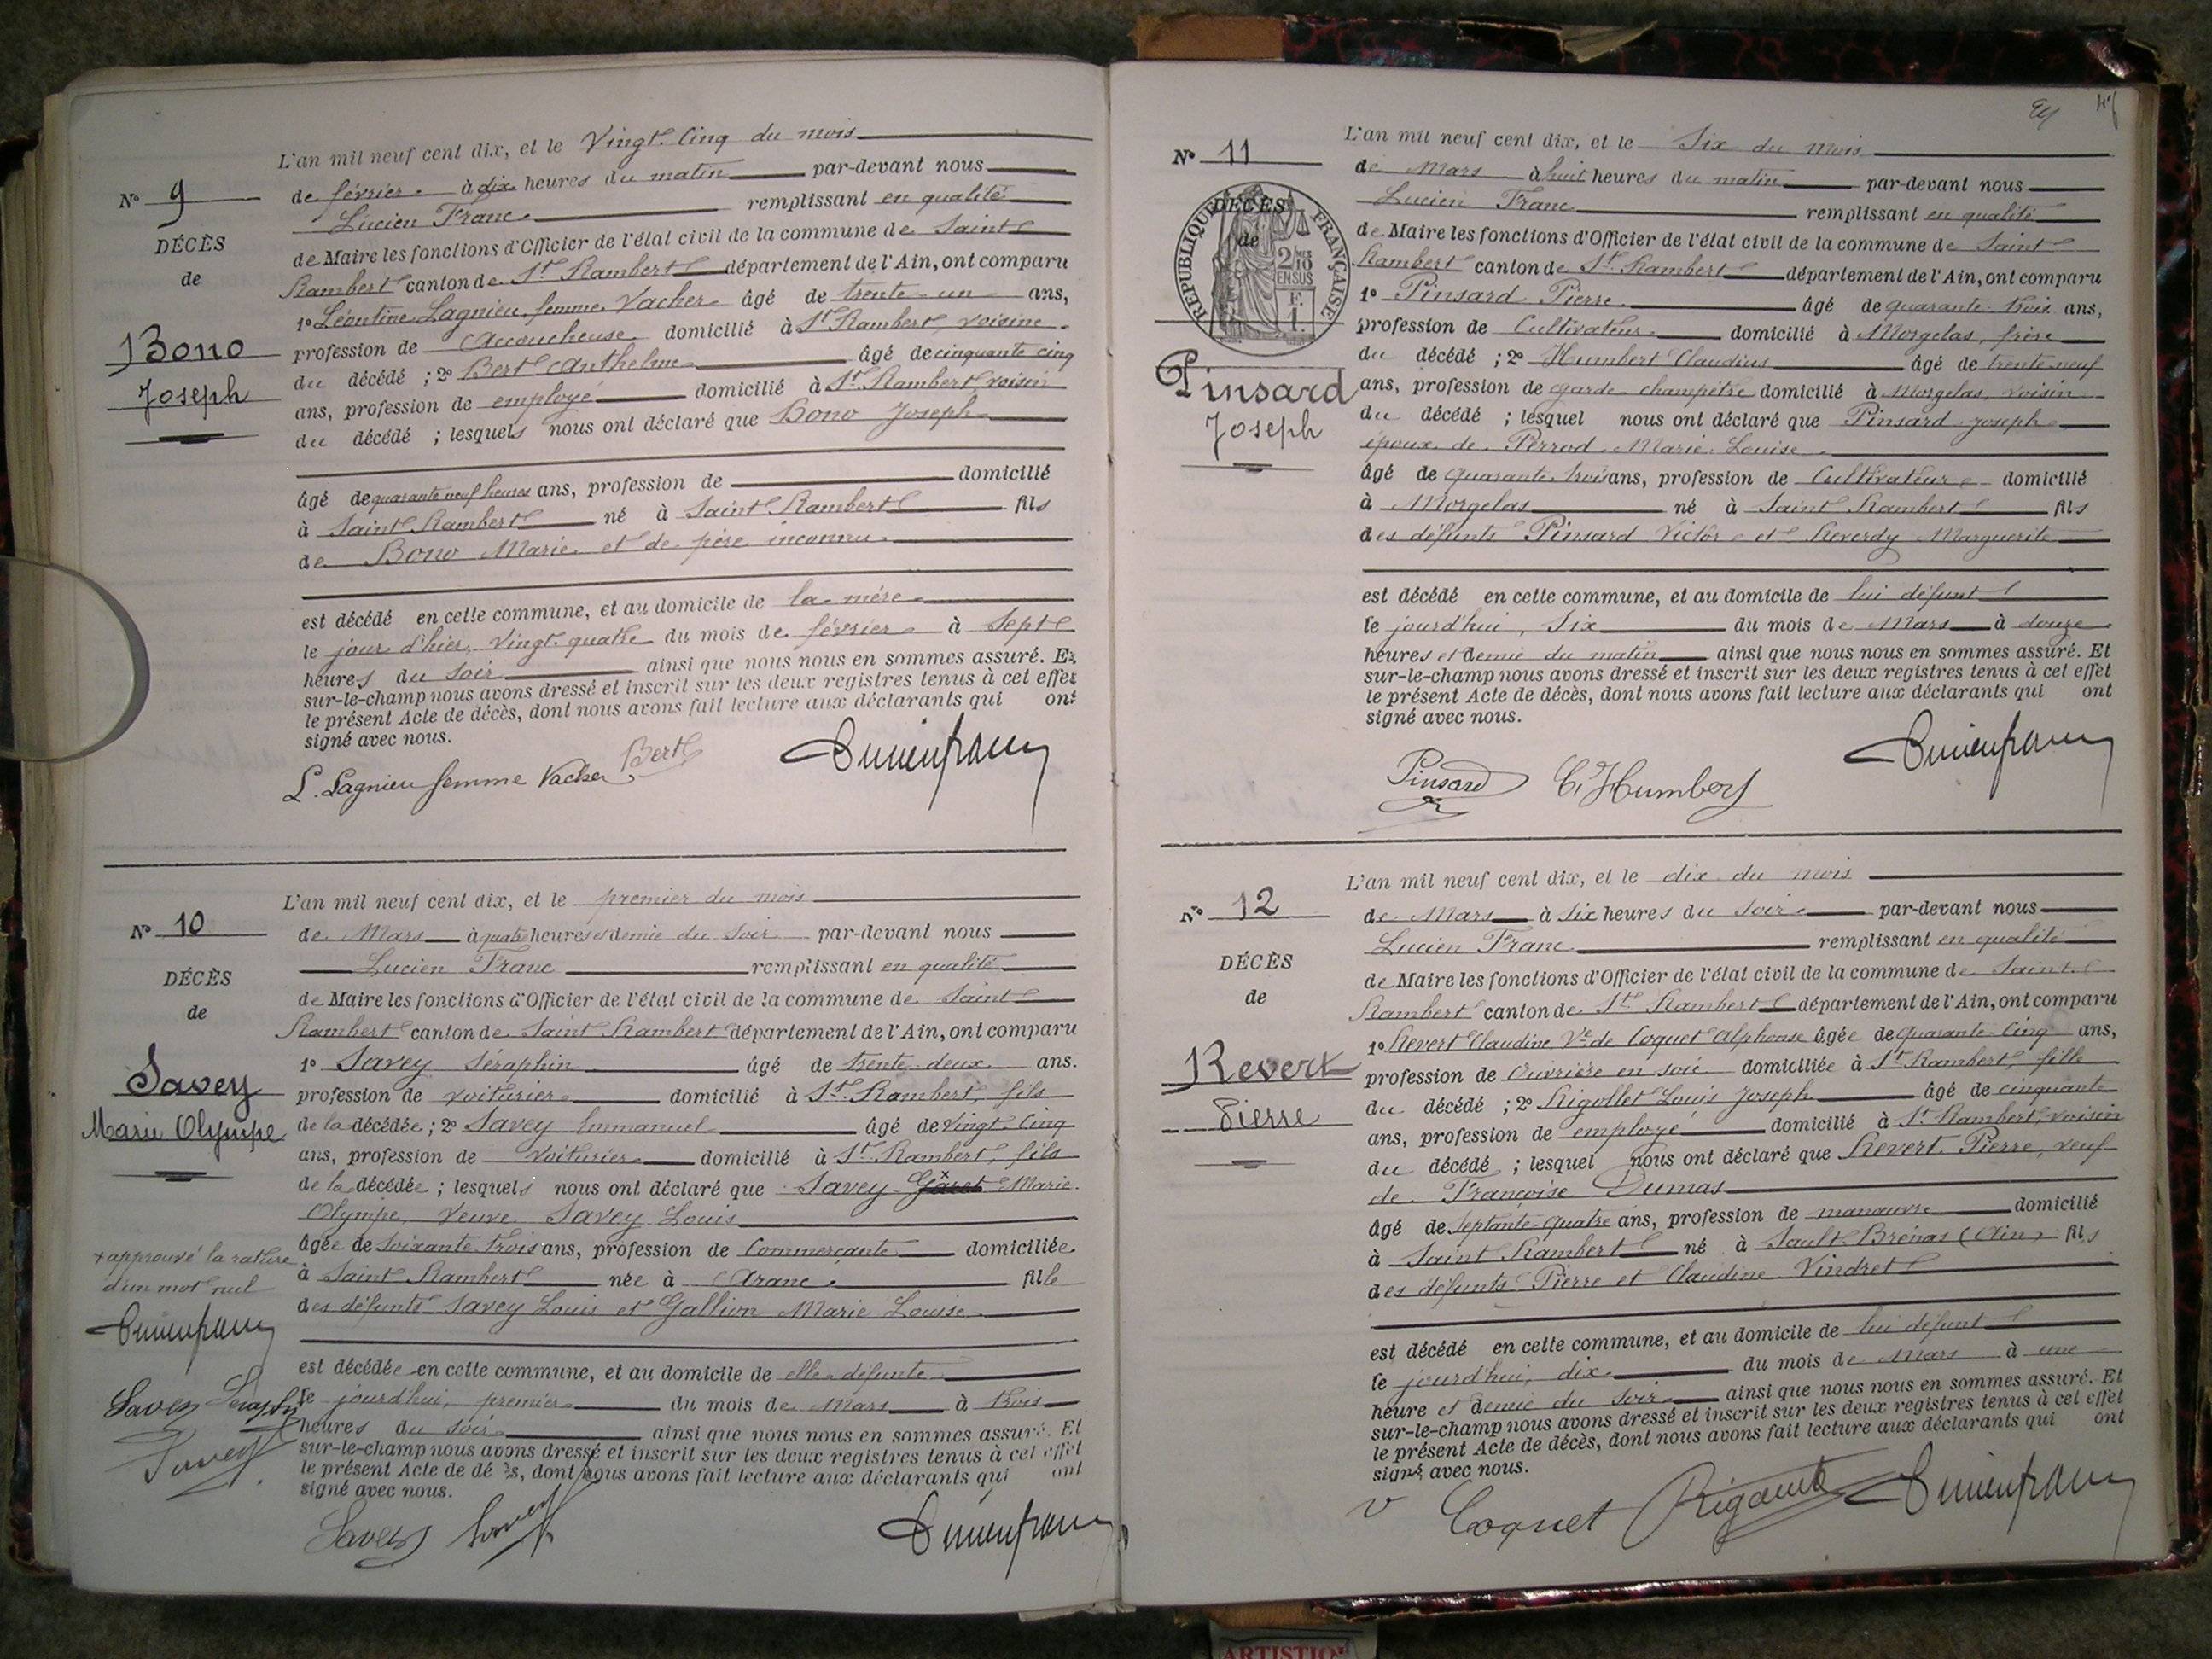 N° 9
DÉCÈS
de
Bono
Joseph
L'an mil neuf cent dix, et le Vingt-Cinq du mois
de février à dix heures du matin par-devant nous
Lucien Franc remplissant en qualité
de Maire les fonctions d'Officier de l'état civil de la commune de Saint
Rambert canton de St Rambert département de l'Ain, ont comparu
1° Léontine Lagnieu femme Vacher âgé de trente-un ans,
profession de Accoucheuse domicilié à St Rambert, voisine
du décédé ; 2° Bert Anthelme âgé de cinquante cinq
ans, profession de employé domicilié à St Rambert, voisin
du décédé ; lesquels nous ont déclaré que Bono Joseph
âgé de quarante neuf heures ans, profession de domicilié
à Saint Rambert né à Saint Rambert fils
de Bono Marie et de père inconnu
est décédé en cette commune, et au domicile de la mère
le jour d'hier, vingt-quatre du mois de février à Sept
heures du soir ainsi que nous nous en sommes assuré. Et
sur-le-champ nous avons dressé et inscrit sur les deux registres tenus à cet effet
le présent Acte de décès, dont nous avons fait lecture aux déclarants qui ont
signé avec nous.
L. Lagnieu femme Vacher Bert Lucien franc
N° 10
DÉCÈS
de
Savey
Marie Olympe
L'an mil neuf cent dix, et le premier du mois
de Mars à quatre heures et demie du soir par-devant nous
Lucien Franc remplissant en qualité
de Maire les fonctions d'Officier de l'état civil de la commune de Saint
Rambert canton de Saint Rambert département de l'Ain, ont comparu
1° Savey Séraphin âgé de trente-deux ans.
profession de voiturier domicilié à St Rambert, fils
de la décédée ; 2° Savey Emmanuel âgé de vingt cinq
ans, profession de voiturier domicilié à St Rambert, fils
de la décédée ; lesquels nous ont déclaré que Savey Marie
Olympe, veuve Savey Louis
âgée de soixante trois ans, profession de Commerçante domiciliée
à Saint Rambert née à Aranc fille
des défunts Savey Louis et Gallion Marie Louise
+ approuvé la rature
d'un mot nul
Lucien franc
Savey Séraphin
Savey
est décédée en cette commune, et au domicile de elle défunte
le jourd'hui, premier du mois de Mars à trois
heures du soir ainsi que nous nous en sommes assuré. Et
sur-le-champ nous avons dressé et inscrit sur les deux registres tenus à cet effet
le présent Acte de décès, dont nous avons fait lecture aux déclarants qui ont
signé avec nous.
Savey Savey Lucien franc
N° 11
RÉPUBLIQUE FRANÇAISE
DÉCÈS
de
2/10
EN SUS
F.
1.
Pinsard
Joseph
L'an mil neuf cent dix, et le Six du mois
de Mars à huit heures du matin par-devant nous
Lucien Franc remplissant en qualité
de Maire les fonctions d'Officier de l'état civil de la commune de Saint
Rambert canton de St Rambert département de l'Ain, ont comparu
1° Pinsard Pierre âgé de quarante-trois ans,
profession de Cultivateur domicilié à Morgelas, frère
du décédé ; 2° Humbert Claudius âgé de trente-neuf
ans, profession de garde champêtre domicilié à Morgelas, voisin
du décédé ; lesquel nous ont déclaré que Pinsard Joseph
époux de Perrod Marie Louise
âgé de quarante trois ans, profession de Cultivateur domicilié
à Morgelas né à Saint Rambert fils
des défunts Pinsard Victor et Reverdy Marguerite
est décédé en cette commune, et au domicile de lui défunt
le jourd'hui, Six du mois de Mars à douze
heures et demie du matin ainsi que nous nous en sommes assuré. Et
sur-le-champ nous avons dressé et inscrit sur les deux registres tenus à cet effet
le présent Acte de décès, dont nous avons fait lecture aux déclarants qui ont
signé avec nous.
Pinsard C. Humbert Lucien franc
N° 12
DÉCÈS
de
Revert
Pierre
L'an mil neuf cent dix, et le dix du mois
de Mars à six heures du soir par-devant nous
Lucien Franc remplissant en qualité
de Maire les fonctions d'Officier de l'état civil de la commune de Saint
Rambert canton de St Rambert département de l'Ain, ont comparu
1° Revert Claudine Ve de Coquet Alphonse âgée de quarante-Cinq ans,
profession de Ouvrière en soie domiciliée à St Rambert, fille
du décédé ; 2° Rigollet Louis Joseph âgé de cinquante
ans, profession de employé domicilié à St Rambert, voisin
du décédé ; lesquel nous ont déclaré que Revert Pierre, veuf
de Françoise Dumas
âgé de septante-quatre ans, profession de manœuvre domicilié
à Saint Rambert né à Sault-Brénaz (Ain) fils
des défunts Pierre et Claudine Vindret
est décédé en cette commune, et au domicile de lui défunt
le jourd'hui, dix du mois de Mars à une
heure et demie du soir ainsi que nous nous en sommes assuré. Et
sur-le-champ nous avons dressé et inscrit sur les deux registres tenus à cet effet
le présent Acte de décès, dont nous avons fait lecture aux déclarants qui ont
signé avec nous.
v Coquet Lucien franc